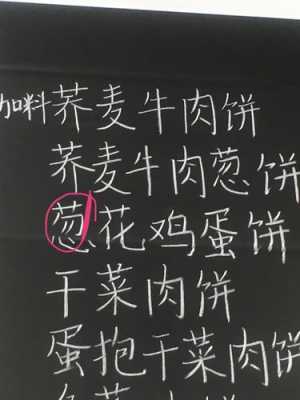 加料荞麦牛肉饼
荞麦牛肉葱饼
葱花鸡蛋饼
干菜肉饼
蛋抱干菜肉饼